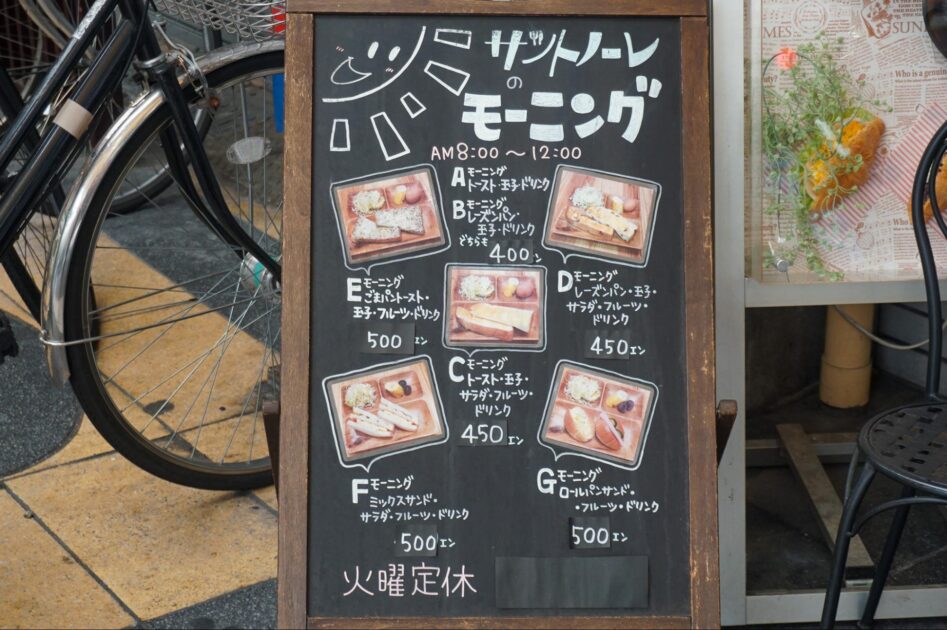 サントノーレ
の
モーニング
AM 8:00 ～ 12:00
A モーニング
トースト・玉子・ドリンク
B モーニング
レーズンパン・
玉子・ドリンク
どちらも
400 エン
E モーニング
ごまパントースト・
玉子・フルーツ・ドリンク
500 エン
D モーニング
レーズンパン・玉子・
サラダ・フルーツ・
ドリンク
450 エン
C モーニング
トースト・玉子・
サラダ・フルーツ・
ドリンク
450 エン
F モーニング
ミックスサンド・
サラダ・フルーツ・ドリンク
500 エン
G モーニング
ロールパンサンド・
・フルーツ・ドリンク
500 エン
火曜定休
Who is a genui